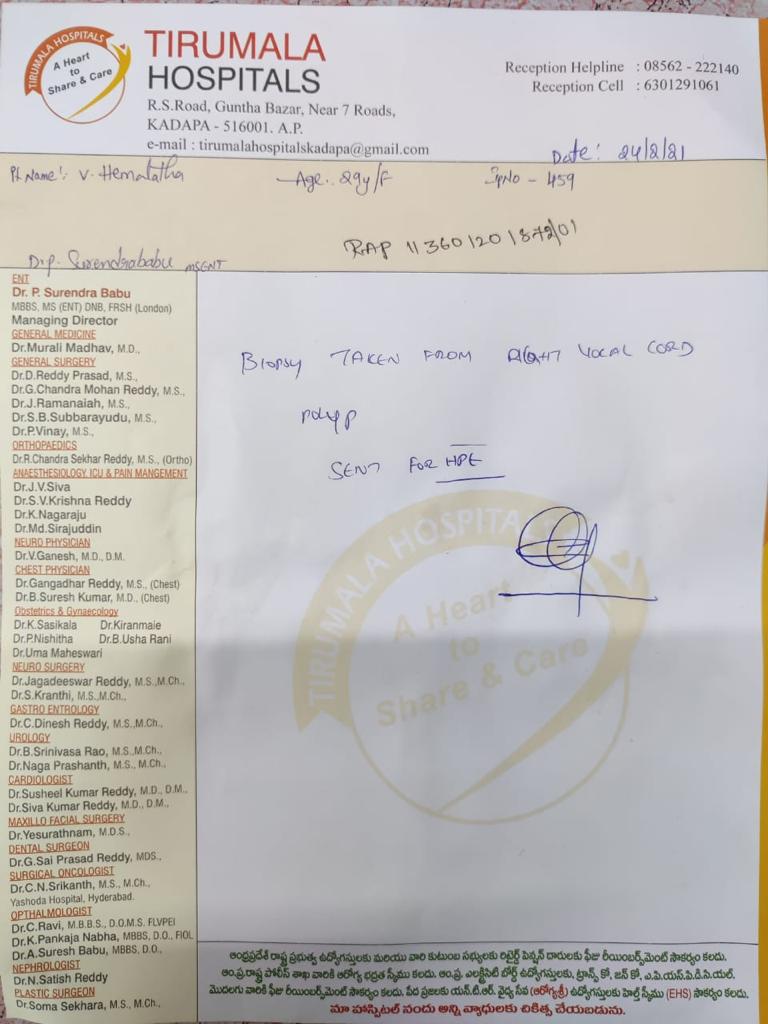 TIRUMALA HOSPITALS
A Heart
to
Share & Care
TIRUMALA
HOSPITALS
R.S.Road, Guntha Bazar, Near 7 Roads,
KADAPA - 516001. A.P.
e-mail : tirumalahospitalskadapa@gmail.com
Reception Helpline : 08562 - 222140
Reception Cell : 6301291061
Date: 24/2/21
Pt Name: V. Hemalatha Age: 29y/F IpNo - 459
RAP 11360120187201
Dr.P. Surendrababu MSENT
ENT
Dr. P. Surendra Babu
MBBS, MS (ENT) DNB, FRSH (London)
Managing Director
GENERAL MEDICINE
Dr.Murali Madhav, M.D.,
GENERAL SURGERY
Dr.D.Reddy Prasad, M.S.,
Dr.G.Chandra Mohan Reddy, M.S.,
Dr.J.Ramanaiah, M.S.,
Dr.S.B.Subbarayudu, M.S.,
Dr.P.Vinay, M.S.,
ORTHOPAEDICS
Dr.R.Chandra Sekhar Reddy, M.S., (Ortho)
ANAESTHESIOLOGY, ICU & PAIN MANGEMENT
Dr.J.V.Siva
Dr.S.V.Krishna Reddy
Dr.K.Nagaraju
Dr.Md.Sirajuddin
NEURO PHYSICIAN
Dr.V.Ganesh, M.D., D.M.
CHEST PHYSICIAN
Dr.Gangadhar Reddy, M.S., (Chest)
Dr.B.Suresh Kumar, M.D., (Chest)
Obstetrics & Gynaecology
Dr.K.Sasikala Dr.Kiranmaie
Dr.P.Nishitha Dr.B.Usha Rani
Dr.Uma Maheswari
NEURO SURGERY
Dr.Jagadeeswar Reddy, M.S.,M.Ch.,
Dr.S.Kranthi, M.S.,M.Ch.,
GASTRO ENTROLOGY
Dr.C.Dinesh Reddy, M.S.,M.Ch.,
UROLOGY
Dr.B.Srinivasa Rao, M.S.,M.Ch.,
Dr.Naga Prashanth, M.S., M.Ch.,
CARDIOLOGIST
Dr.Susheel Kumar Reddy, M.D., D.M..
Dr.Siva Kumar Reddy, M.D., D.M.,
MAXILLO FACIAL SURGERY
Dr.Yesurathnam, M.D.S.,
DENTAL SURGEON
Dr.G.Sai Prasad Reddy, MDS.,
SURGICAL ONCOLOGIST
Dr.C.N.Srikanth, M.S., M.Ch.,
Yashoda Hospital, Hyderabad.
OPTHALMOLOGIST
Dr.C.Ravi, M.B.B.S., D.O.M.S. FLVPEI
Dr.K.Pankaja Nabha, MBBS, D.O., FIOL
Dr.A.Suresh Babu, MBBS, D.O.,
NEPHROLOGIST
Dr.N.Satish Reddy
PLASTIC SURGEON
Dr.Soma Sekhara, M.S., M.Ch.,
BIOPSY TAKEN FROM RIGHT VOCAL CORD
POLYP
SENT FOR HPE
TIRUMALA HOSPITALS
A Heart
to
Share & Care
ఆంధ్రప్రదేశ్ రాష్ట్ర ప్రభుత్వ ఉద్యోగస్తులకు మరియు వారి కుటుంబ సభ్యులకు రిటైర్డ్ పెన్షన్ దారులకు ఫీజు రీయింబర్స్‌మెంట్ సౌకర్యం కలదు.
ఆం.ప్ర.రాష్ట్ర పోలీస్ శాఖ వారికి ఆరోగ్య భద్రత స్కీము కలదు. ఆం.ప్ర. ఎలక్ట్రిసిటీ బోర్డ్ ఉద్యోగస్తులకు, ట్రాన్స్ కో, జన్ కో, ఎ.పి.యస్.పి.డి.సి.యల్.
మొదలగు వారికి ఫీజు రీయింబర్స్‌మెంట్ సౌకర్యం కలదు. పేద ప్రజలకు యన్.టి.ఆర్. వైద్య సేవ (ఆరోగ్యశ్రీ) ఉద్యోగస్తులకు హెల్త్ స్కీము (EHS) సౌకర్యం కలదు.
మా హాస్పిటల్ నందు అన్ని వ్యాధులకు చికిత్స చేయబడును.